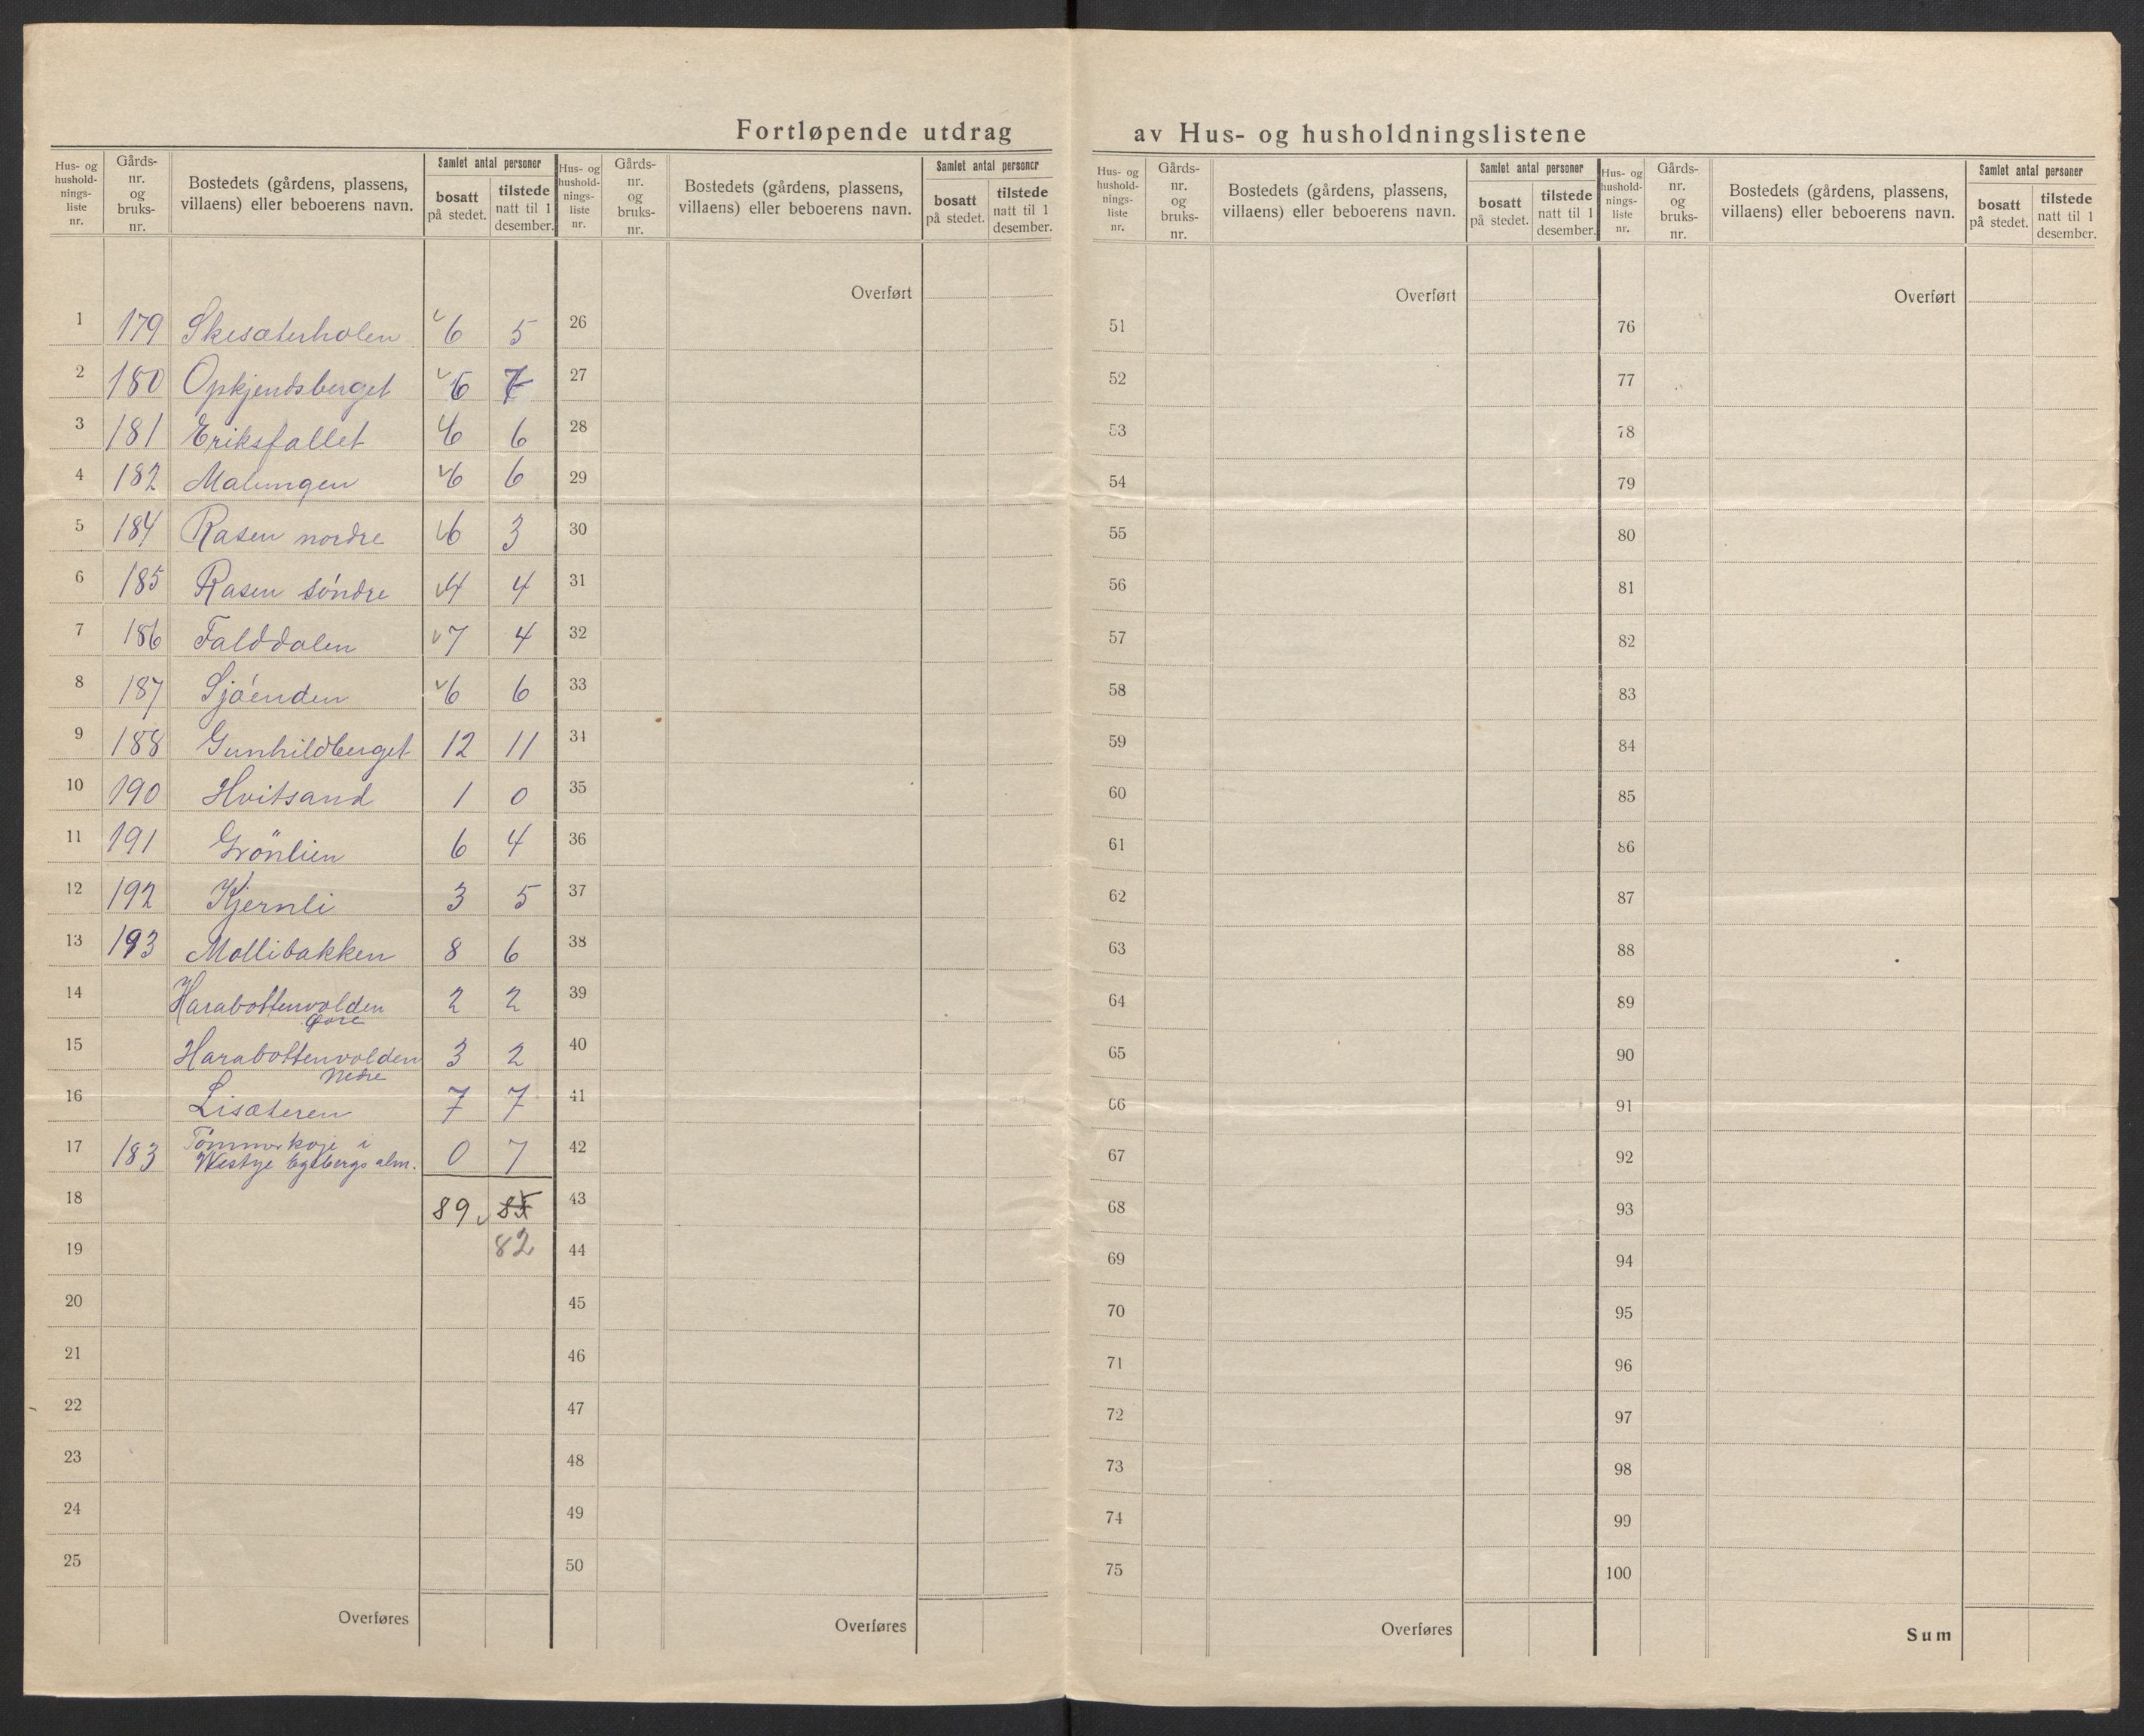 Fortløpende utdrag av Hus- og husholdningslistene
Hus- og hushold- nings- liste nr. | Gårds- nr. og bruks- nr. | Bostedets (gårdens, plassens, villaens) eller beboerens navn. | Samlet antal personer | bosatt på stedet. | tilstede natt til 1 desember.
Hus- og hushold- nings- liste nr. | Gårds- nr. og bruks- nr. | Bostedets (gårdens, plassens, villaens) eller beboerens navn. | Samlet antal personer | bosatt på stedet. | tilstede natt til 1 desember.
Hus- og hushold- nings- liste nr. | Gårds- nr. og bruks- nr. | Bostedets (gårdens, plassens, villaens) eller beboerens navn. | Samlet antal personer | bosatt på stedet. | tilstede natt til 1 desember.
Hus- og hushold- nings- liste nr. | Gårds- nr. og bruks- nr. | Bostedets (gårdens, plassens, villaens) eller beboerens navn. | Samlet antal personer | bosatt på stedet. | tilstede natt til 1 desember.
Overført Overført Overført
1 179 Skesæterholen 6 5 26 51 76
2 180 Opkjendsberget 6 7 27 52 77
3 181 Eriksfallet 6 6 28 53 78
4 182 Malungen 6 6 29 54 79
5 184 Rasen nordre 6 3 30 55 80
6 185 Rasen söndre 4 4 31 56 81
7 186 Falddalen 7 4 32 57 82
8 187 Sjöenden 6 6 33 58 83
9 188 Gunhildberget 12 11 34 59 84
10 190 Hvitsand 1 0 35 60 85
11 191 Grönlien 6 4 36 61 86
12 192 Kjernli 3 5 37 62 87
13 193 Mollibakken 8 6 38 63 88
14 Harabottenvolden 2 2 39 64 89
øvre
15 Harabottenvolden 3 2 40 65 90
Nedre
16 Lisæteren 7 7 41 66 91
17 183 Tömmerkoje i
Westye Egebergs alm. 0 7 42 67 92
18 89 85 43 68 93
19 82 44 69 94
20 45 70 95
21 46 71 96
22 47 72 97
23 48 73 98
24 49 74 99
25 50 75 100
Overføres Overføres Overføres Sum